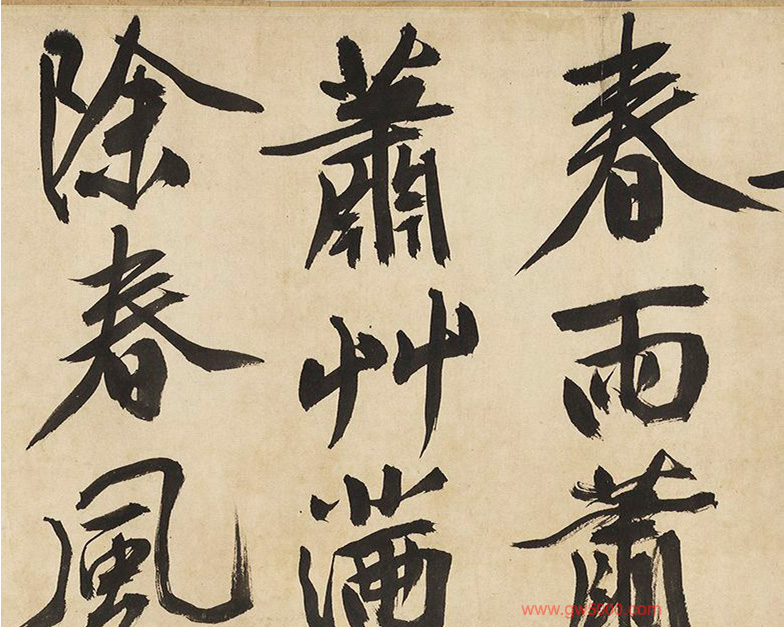 春雨蕭
蕭艸滿
除春風
www.gw5000.com